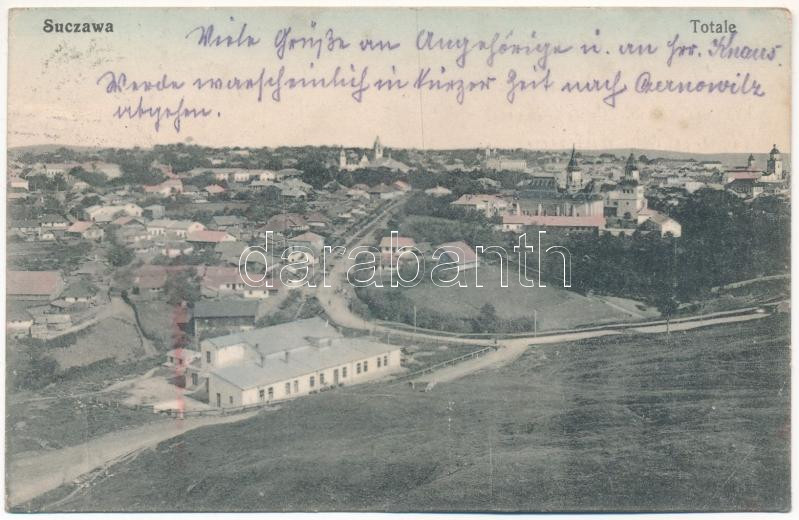 Suczawa
Totale
Viele Grüße an Angehörige u. an Hrr. Knaus.
Werde warscheinlich in kürzer Zeit nach Czernowitz
abgehen.
darabanth.com